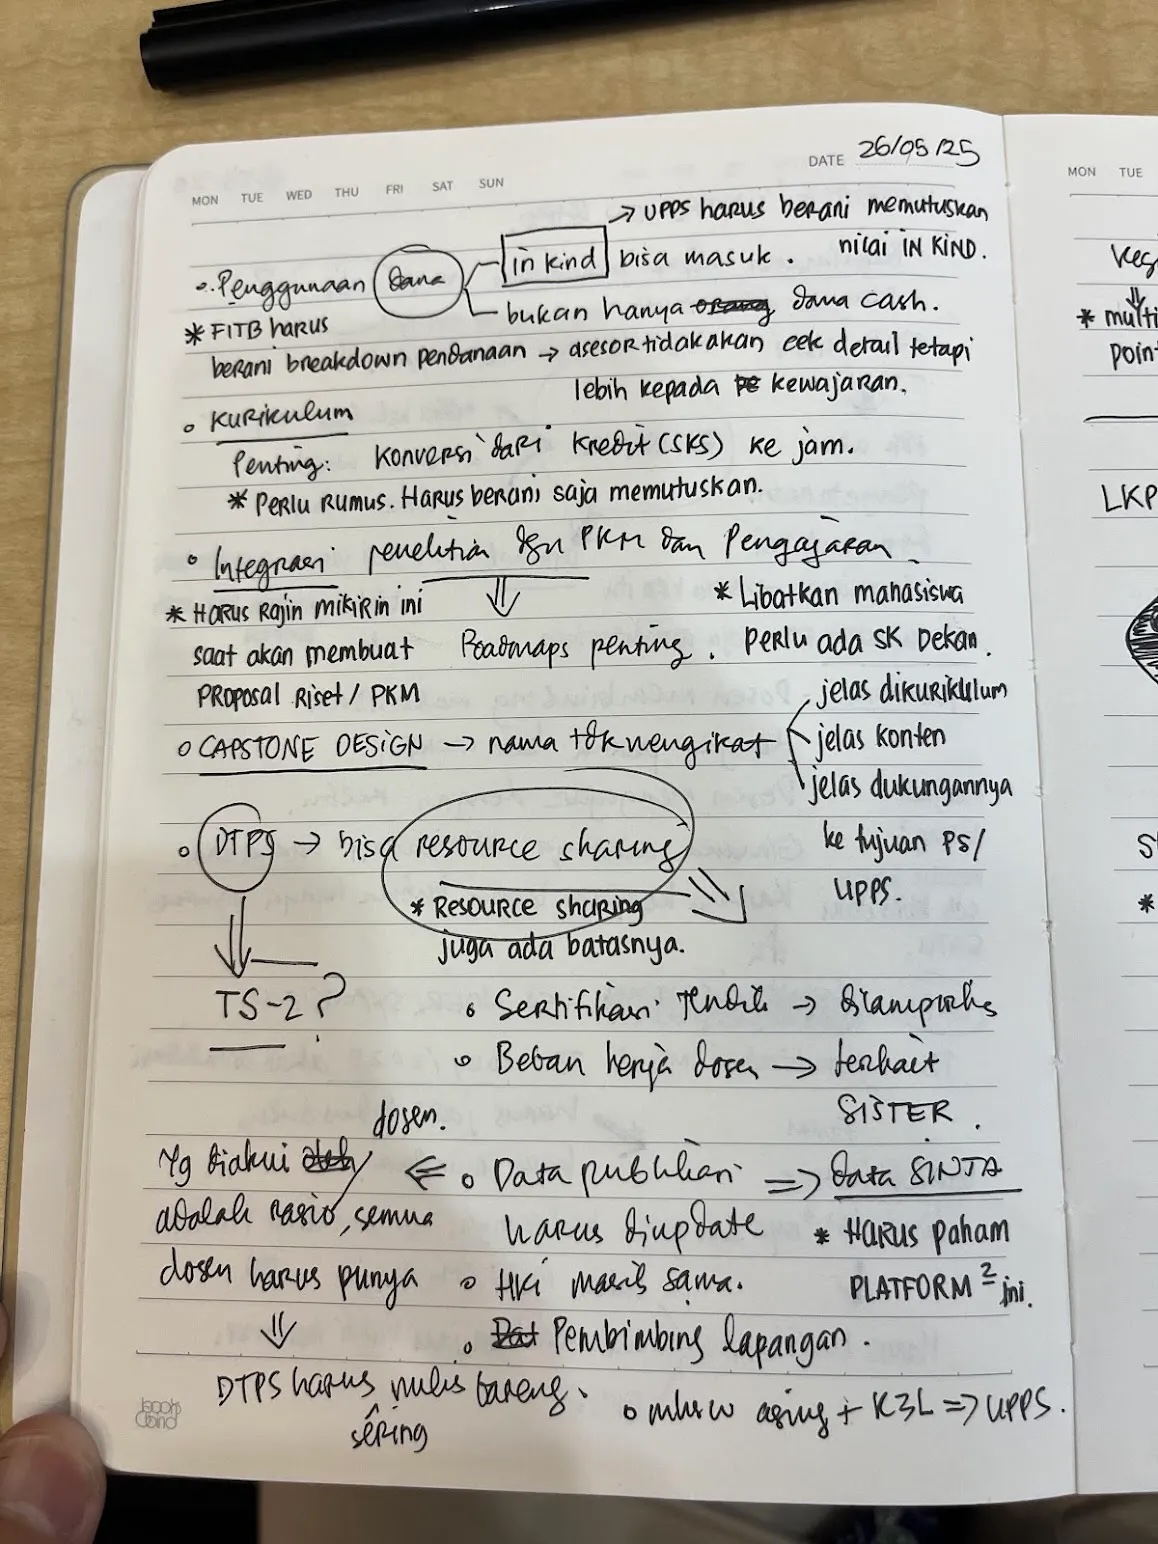 MON TUE WED THU FRI SAT SUN
DATE 26/05/25
→ UPPS harus berani memutuskan
nilai IN KIND.
in kind bisa masuk.
o. Penggunaan Dana
bukan hanya dana cash.
* FITB harus
berani breakdown pendanaan → asesor tidak akan cek detail tetapi
lebih kepada kewajaran.
o Kurikulum
Penting: Konversi dari Kredit (SKS) ke jam.
* Perlu rumus. Harus berani saja memutuskan.
o Integrasi penelitian dgn PKM dan Pengajaran
* Harus rajin mikirin ini
saat akan membuat
proposal riset / PKM
⇓
Roadmaps penting.
* Libatkan mahasiswa
perlu ada SK Dekan.
o CAPSTONE DESIGN → nama tdk mengikat
jelas dikurikulum
jelas konten
jelas dukungannya
ke tujuan PS/
UPPS.
o DTPS → bisa resource sharing
* Resource sharing
juga ada batasnya.
TS-2?
o Sertifikasi Tendik →
o Beban kerja dosen → terkait
SISTER.
o Data publikasi ⇒ data SINTA
harus diupdate
* Harus paham
PLATFORM2 ini.
o HKI masih sama.
o Pembimbing lapangan.
o mhsw asing + K3L ⇒ UPPS.
dosen.
Yg diakui
adalah rasio, semua
dosen harus punya
⇓
DTPS harus nulis bareng.
sering
MON TUE
* multi
point
LKP
*